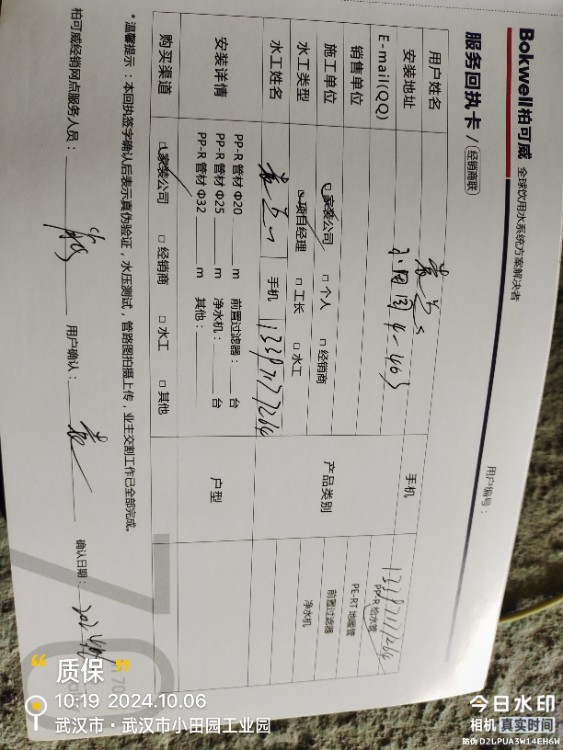 Bokwell柏可威 全球饮用水系统方案解决者
服务回执卡 / 经销商联
用户编号：
用户姓名
手机
安装地址 小田园 4-403
E-mail(QQ)
销售单位
产品类别
PP-R 给水管
PE-RT 地暖管
前置过滤器
净水机
施工单位 家装公司 □ 个人 □ 经销商
水工类型 项目经理 □ 工长 □ 水工
水工姓名 手机 13397177264
安装详情
PP-R 管材 Φ20 m 前置过滤器： 台
PP-R 管材 Φ25 m 净水机： 台
PP-R 管材 Φ32 m 其他：
户型
购买渠道 家装公司 □ 经销商 □ 水工 □ 其他
* 温馨提示：本回执签字确认后表示真伪验证，水压测试，管路图拍摄上传，业主交割工作已全部完成。
柏可威经销网点服务人员： 用户确认： 确认日期：
70
“质保”
10:19 2024.10.06
武汉市·武汉市小田园工业园
今日水印
相机 真实时间
防伪 D2LPUA3W14EH6W